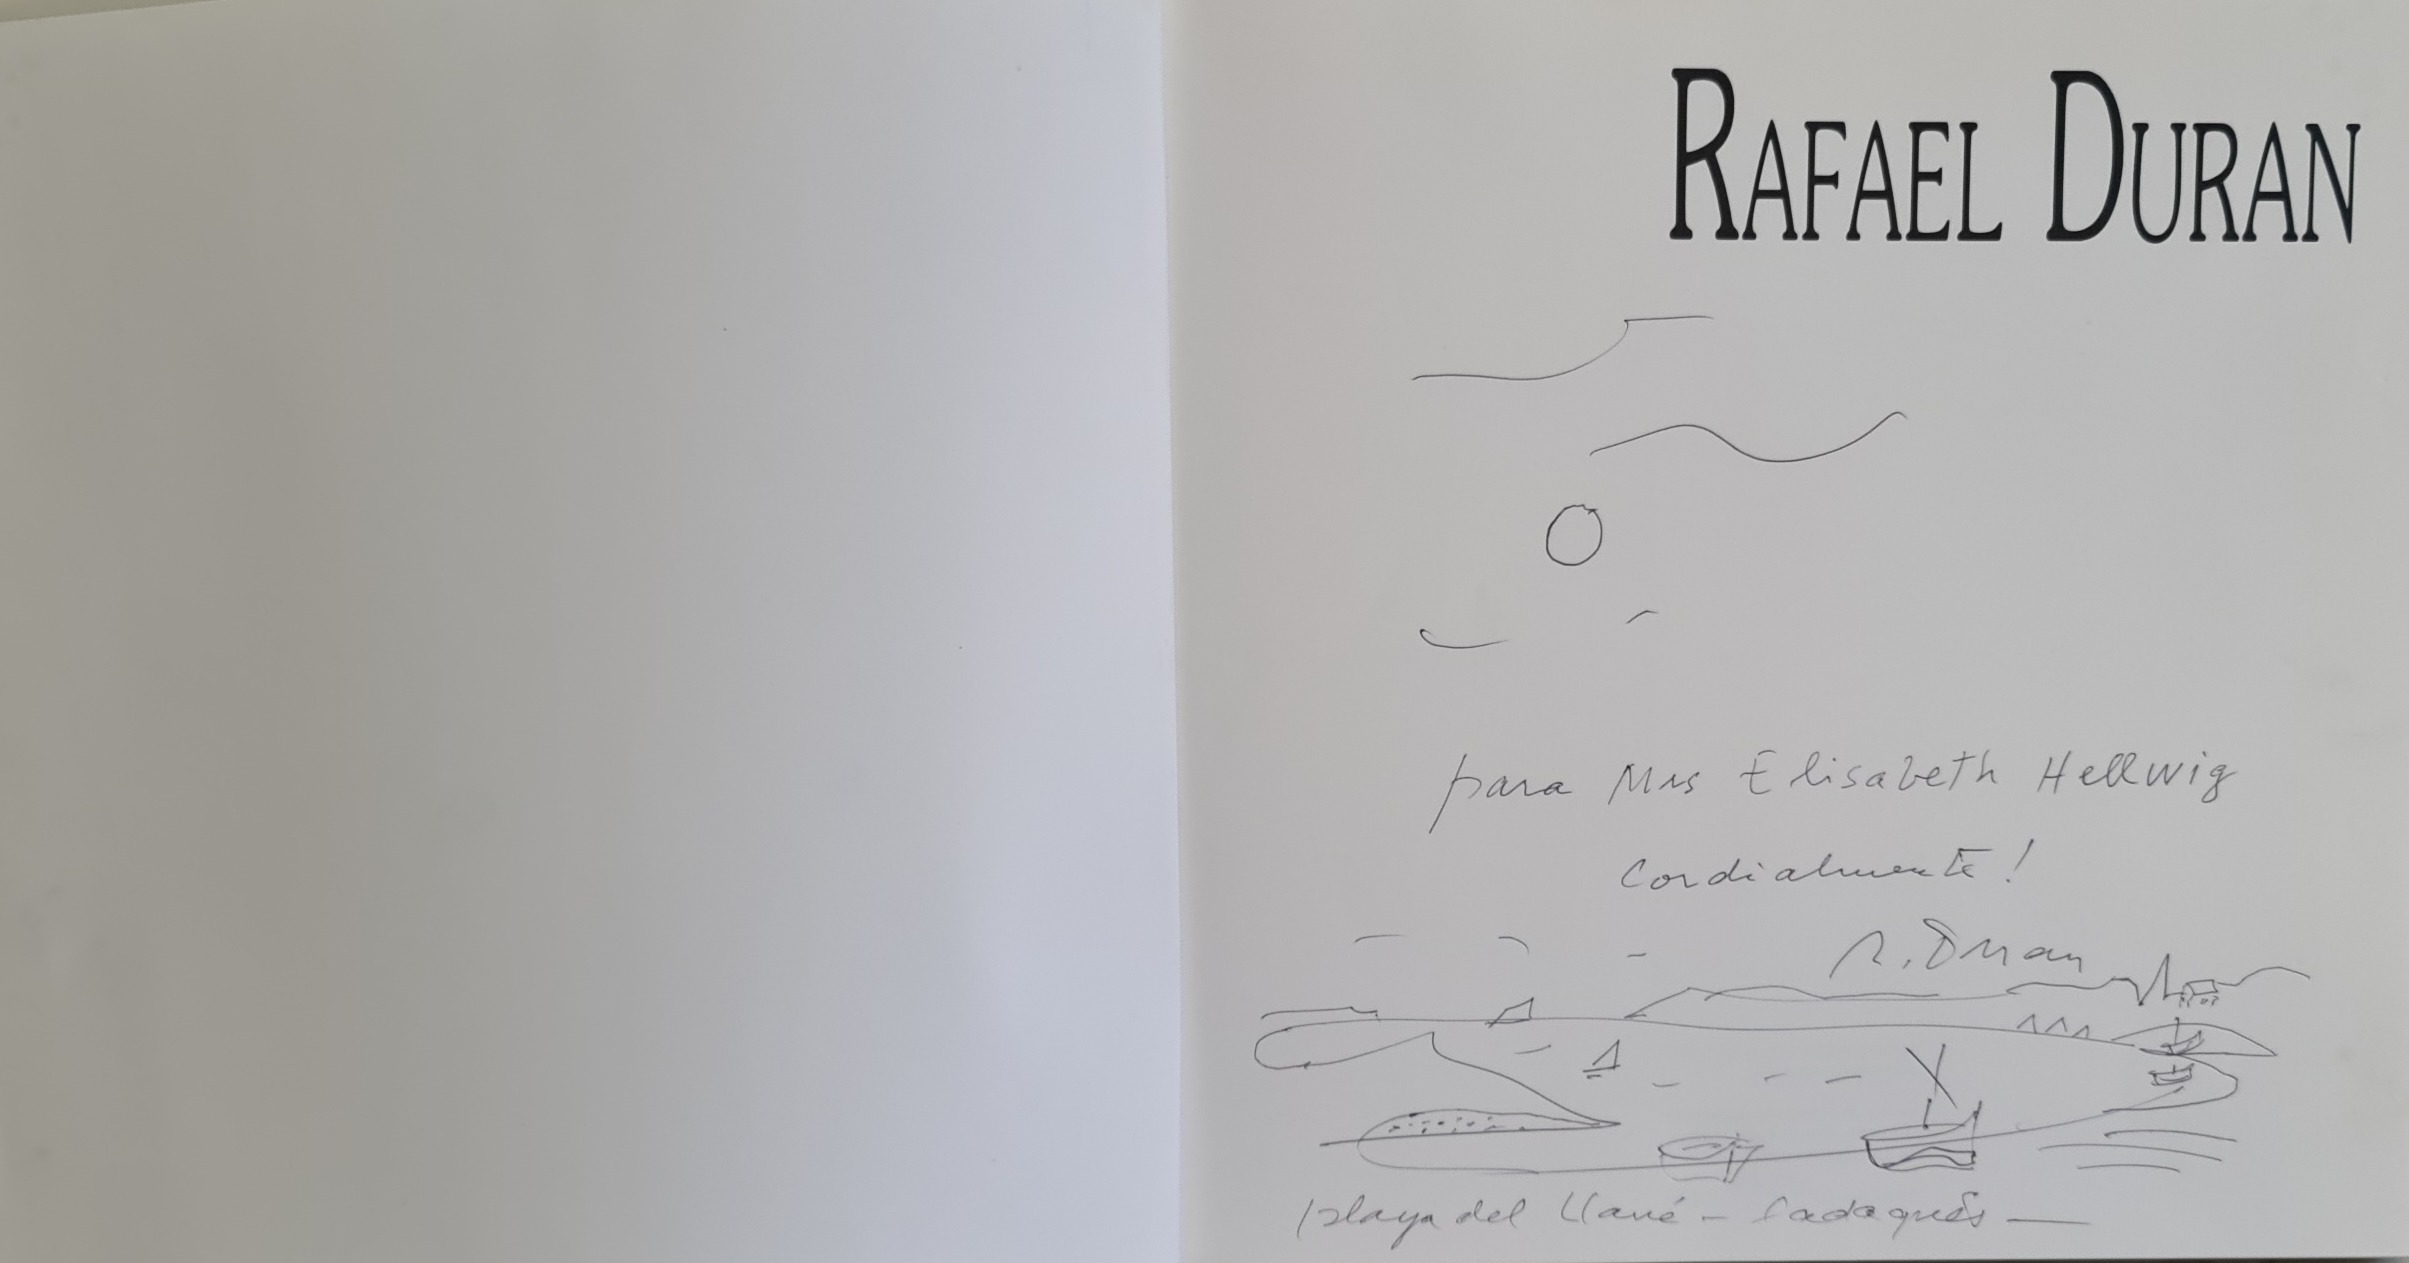 RAFAEL DURAN
para Mrs Elisabeth Hellwig
Cordialmente!
R. Duran
Playa del Llané - Cadaqués -